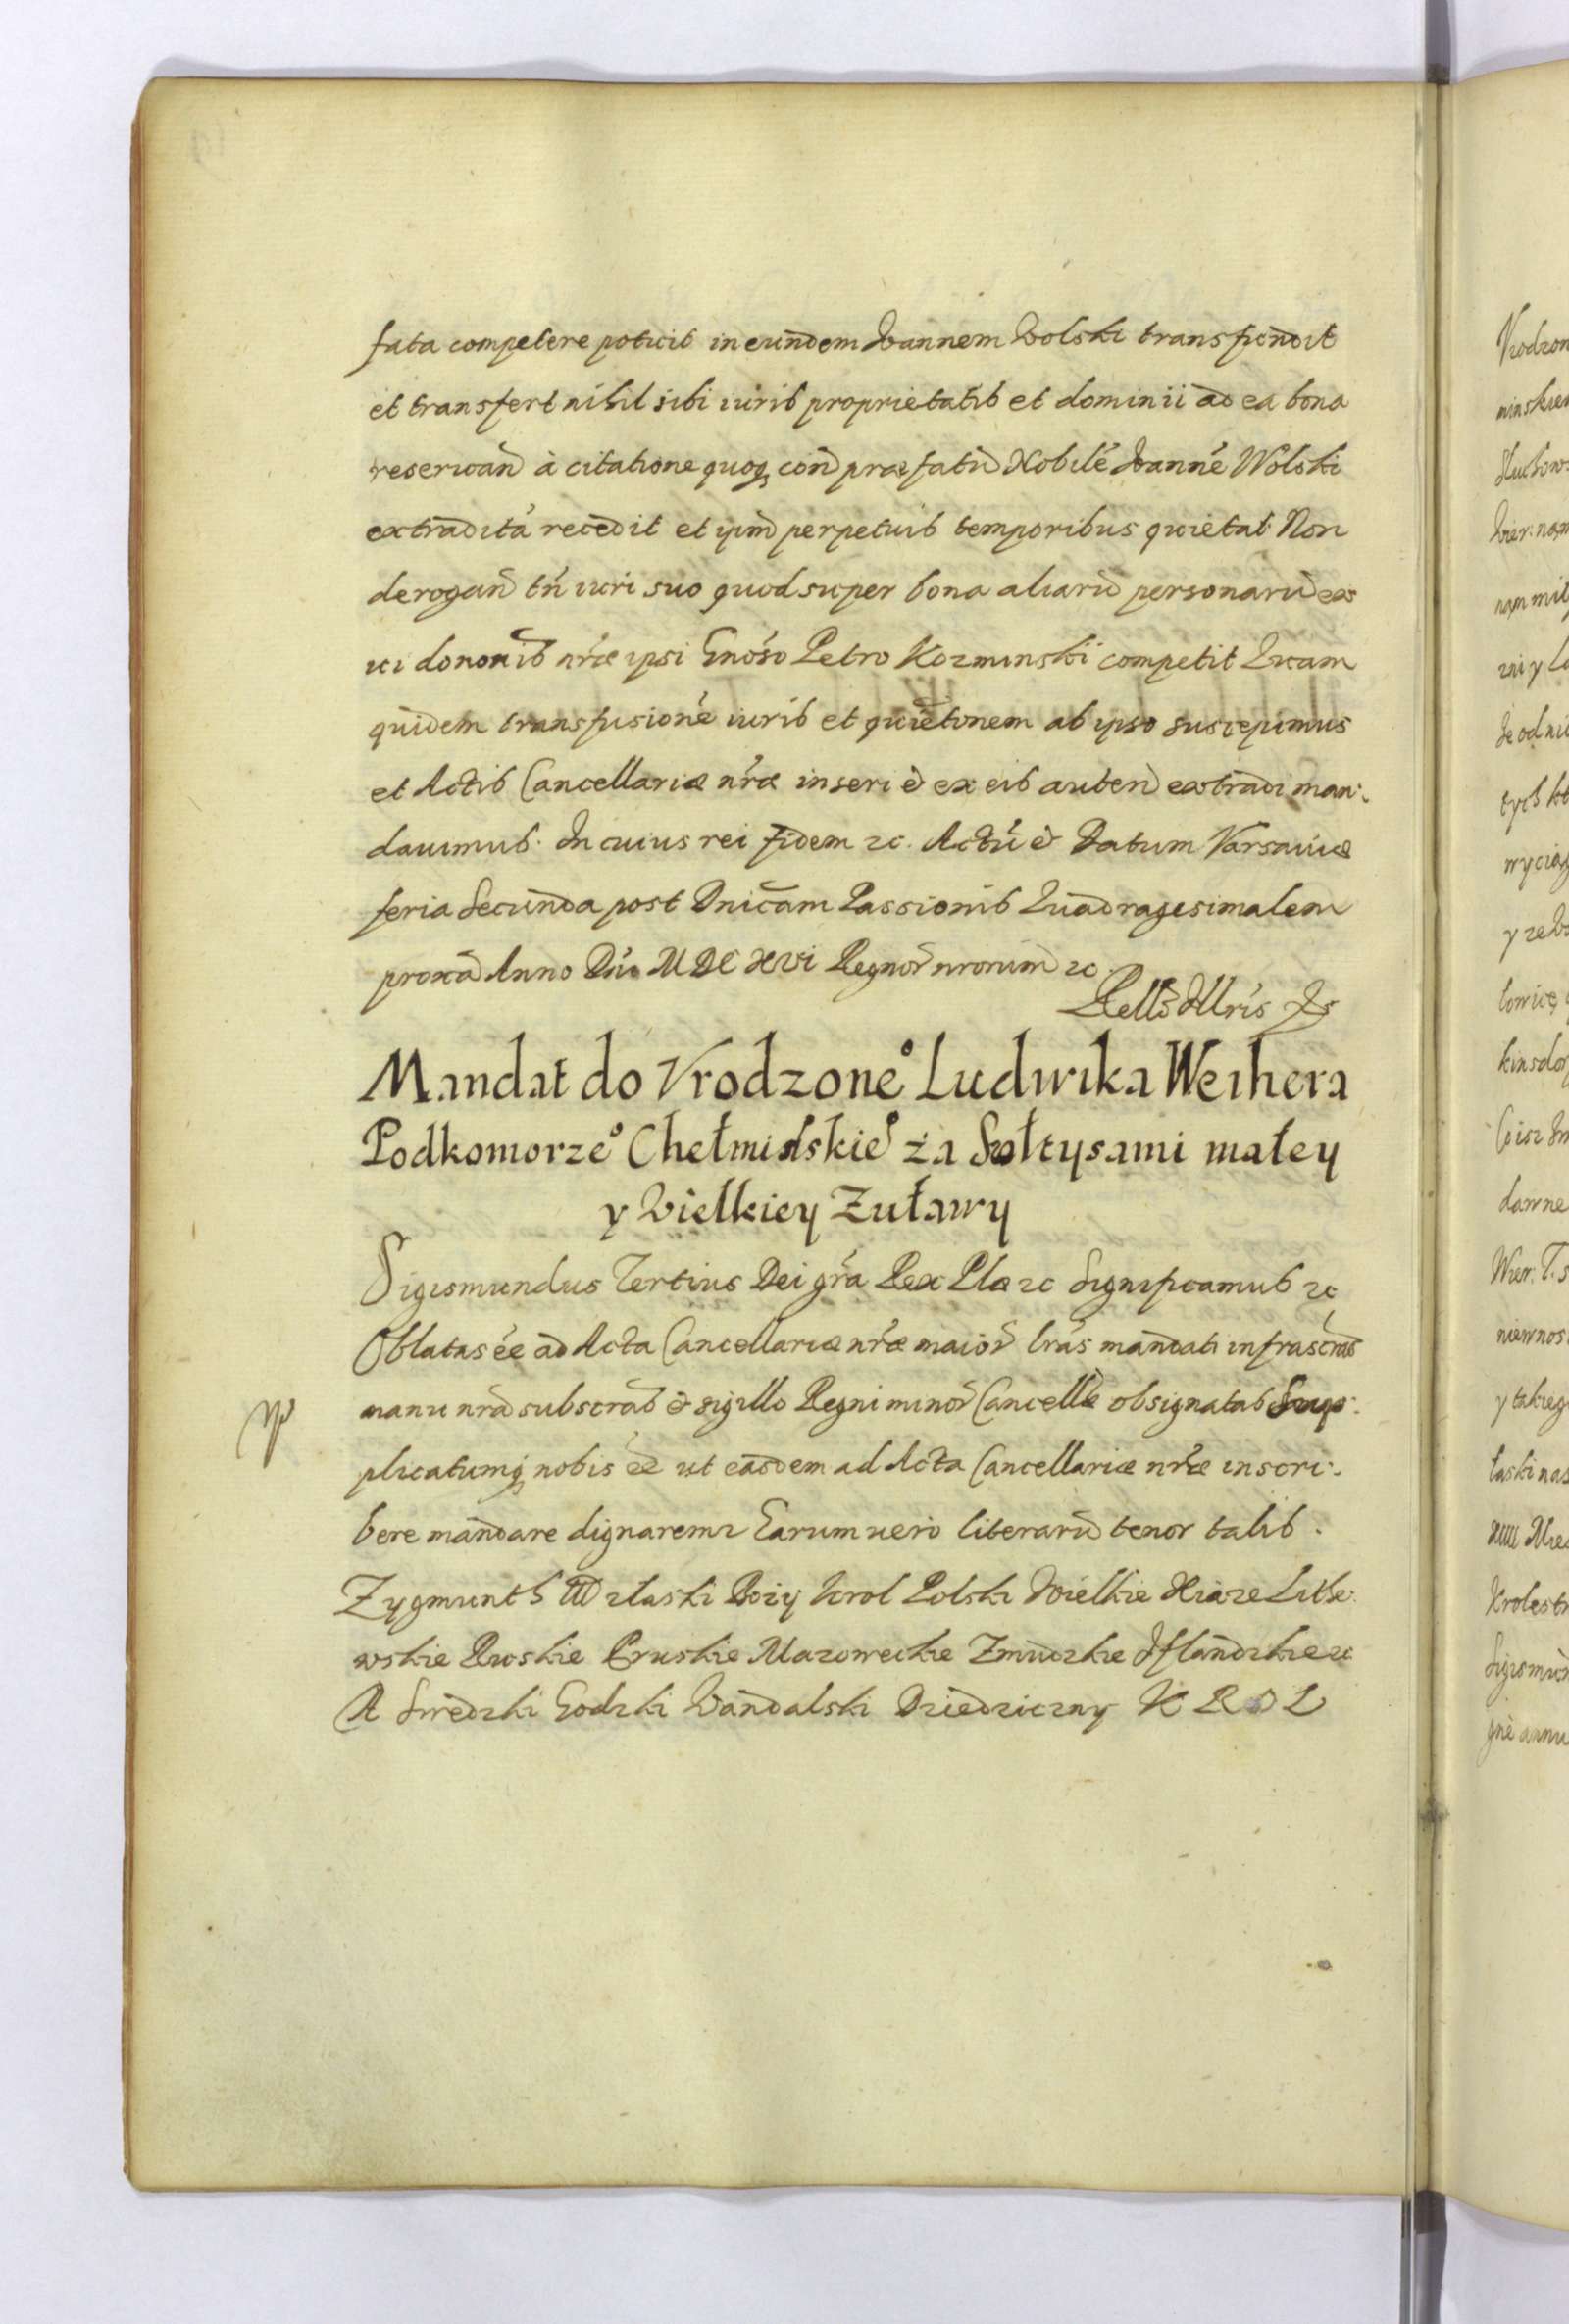 fata competere potuit in eundem Joannem Wolski transfundit
et transfert nihil sibi iuris proprietatis et dominii ad ea bona
reseruan̄ à citatione quoq, con̄ præfatū Nobilē Joannē Wolski
extraditā recedit et ipm̄ perpetuis temporibus quietat. Non
derogan̄ tn̄ iuri suo quod super bona aliarū personarū ex
ui donon̄is nr̄æ ipsi Gnōso Petro Kozminski competit Quam
quidem transfusionē iuris et quietōnem ab ipso suscepimus
et Actis Cancellariæ nr̄æ inseri & ex eis auten̄ extradi man:
dauimus. In cuius rei fidem ⁊c. Actū & Datum Varsauiæ
feria Secunda post Dnīcam Passionis Quadragesimalem
proxā Anno Dn̄i MDCXVI Regnoȓ nrorum ⁊c.
Mandat do Vrodzone° Ludwika Weihera
Podkomorze° Chełmińskie° za Sołtysami małey
y Wielkiey Żuławy
Sigismundus Tertius Dei gr̄a Rex Plæ ⁊c Significamus ⁊c
Oblatas ēē ad Acta Cancellariæ nr̄æ maioȓ lrās mandati infrascrās
manu nrā subscrās & sigillo Regni minoȓ Cancellæ obsignatas Sup:
plicatumq, nobis ēē ut easdem ad Acta Cancellariæ nr̄æ inscri:
bere mandare dignaremur Earum uero literarū tenor talis.
Zygmunth III z łaski Bozy Krol Polski Wielkie Xiaze Lithe:
wskie Ruskie Pruskie Mazoweckie Zmudzkie Iflandzkie ⁊c
A Swedzki Godzki Wandalski Dziedziczny KROL